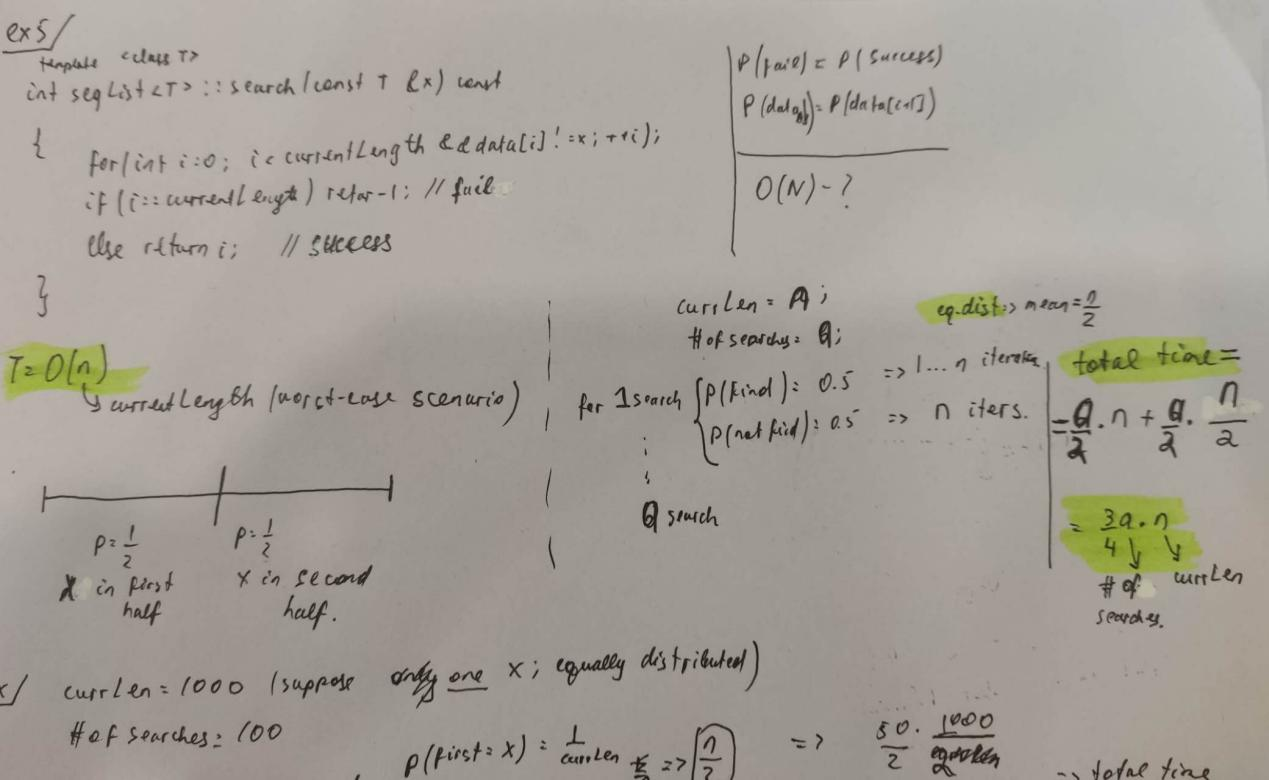 ex5/
template <class T>
int seqList<T>::search(const T &x) const
{
for(int i=0; i< currentLength && data[i]!=x; ++i);
if (i==currentLength) retur-1; // fail
else return i; // success
}
P(fail) = P(success)
P(data[i]) = P(data[i+1])
O(N)-?
T=O(n)
currentLength (worst-case scenario)
p=1/2
x in first half
p=1/2
x in second half.
currLen = n;
# of searches = q;
for 1 search
P(find) = 0.5 => 1...n iterations
P(not find) = 0.5 => n iters.
q search
eq.dist => mean = n/2
total time =
= q/2 . n + q/2 . n/2
= 3q.n/4
# of searches.
currLen
currLen = 1000 (suppose only one x; equally distributed)
# of searches = 100
P(first = x) = 1/currLen => n/2 => 50/2 . 1000
=> total time